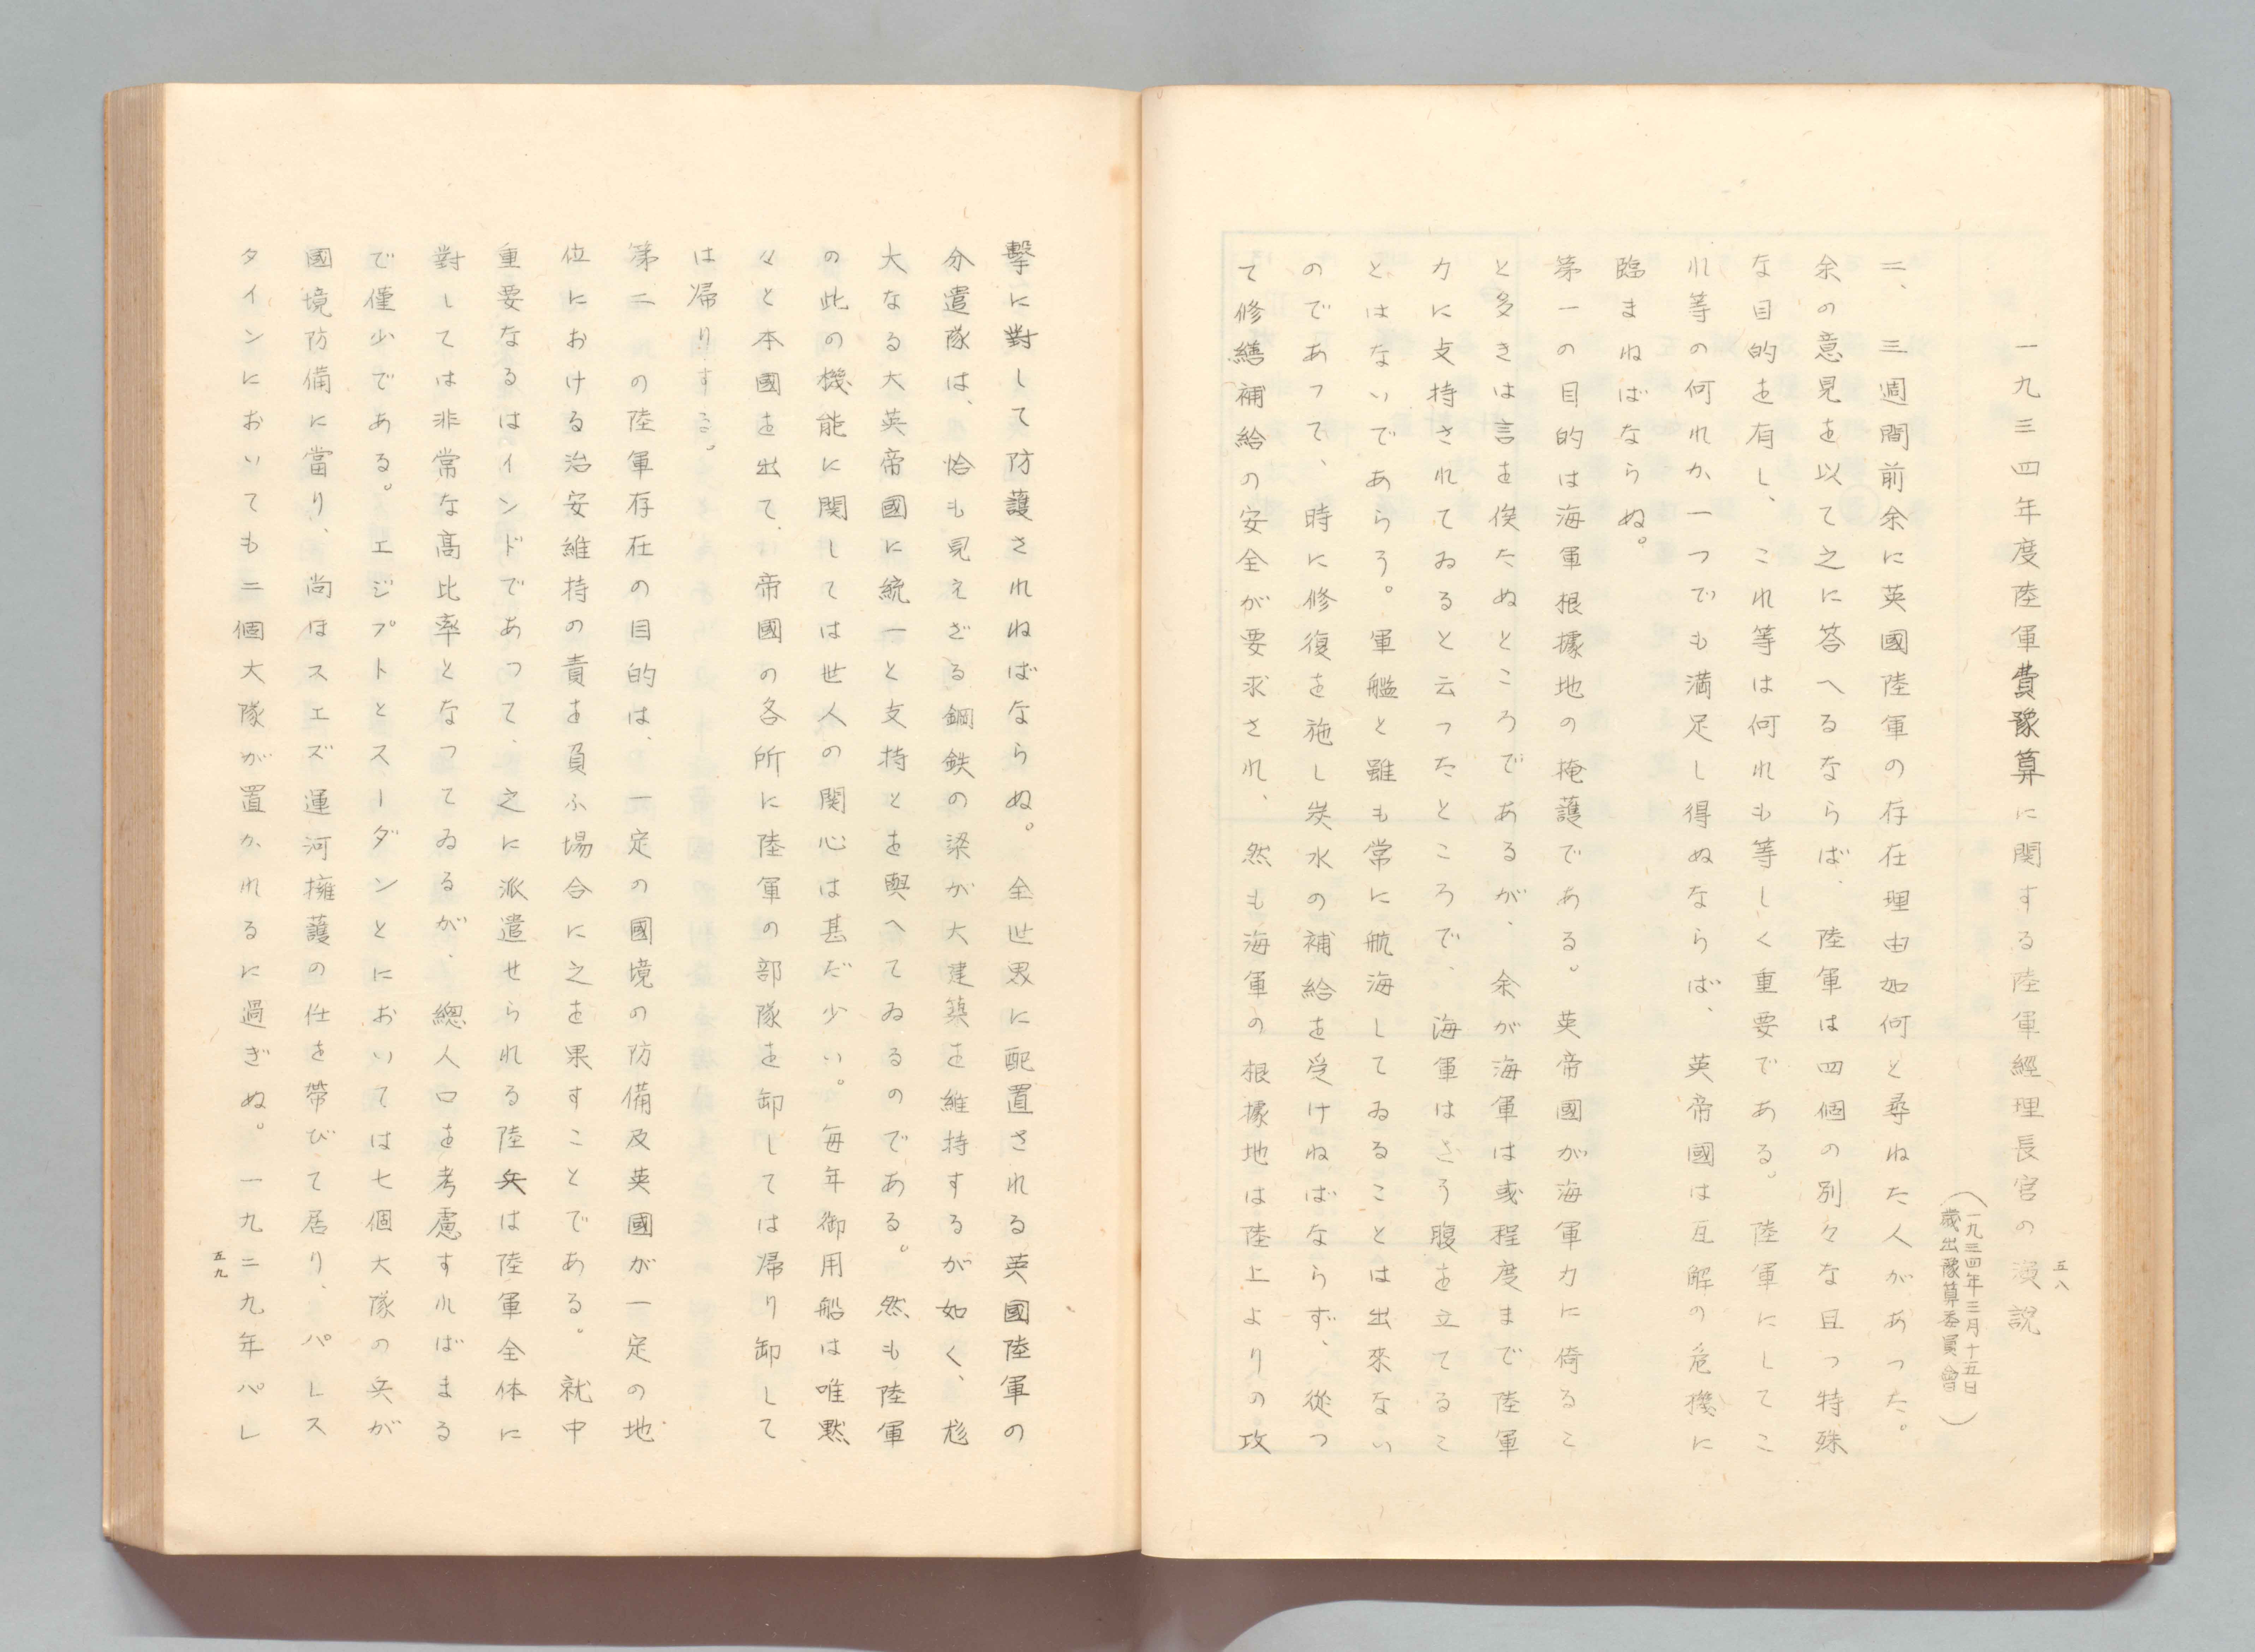 五八
一九三四年度陸軍費豫算に関する陸軍經理長官の演説
（一九三四年三月十五日
歳出豫算委員會）
二、三週間前余に英國陸軍の存在理由如何と尋ねた人があった。
余の意見を以て之に答へるならば、陸軍は四個の別々な且つ特殊
な目的を有し、これ等は何れも等しく重要である。陸軍にしてこ
れ等の何れか一つでも満足し得ぬならば、英帝國は瓦解の危機に
臨まねばならぬ。
第一の目的は海軍根據地の掩護である。英帝國が海軍力に倚るこ
と多きは言を俟たぬところであるが、余が海軍は或程度まで陸軍
力に支持されてゐると云ったところで、海軍はさう腹を立てるこ
とはないであらう。軍艦と雖も常に航海してゐることは出來ない
のであって、時に修復を施し炭水の補給を受けねばならず、從つ
て修繕補給の安全が要求され、然も海軍の根據地は陸上よりの攻
擊に對して防護されねばならぬ。全世界に配置される英國陸軍の
分遣隊は、恰も見えざる鋼鉄の梁が大建築を維持するが如く、彪
大なる大英帝國に統一と支持とを與へてゐるのである。然も陸軍
の此の機能に関しては世人の関心は甚だ少い。毎年御用船は唯黙
々と本國を出て、帝國の各所に陸軍の部隊を卸しては帰り卸して
は帰りする。
第二の陸軍存在の目的は、一定の國境の防備及英國が一定の地
位における治安維持の責を負ふ場合に之を果すことである。就中
重要なるはインドであつて、之に派遣せられる陸兵は陸軍全体に
對しては非常な高比率となつてゐるが、總人口を考慮すればまる
で僅少である。エジプトとスーダンとにおいては七個大隊の兵が
國境防備に當り、尚ほスエズ運河擁護の任を帶びて居り、パレス
タインにおいても二個大隊が置かれるに過ぎぬ。一九二九年パレ
五九